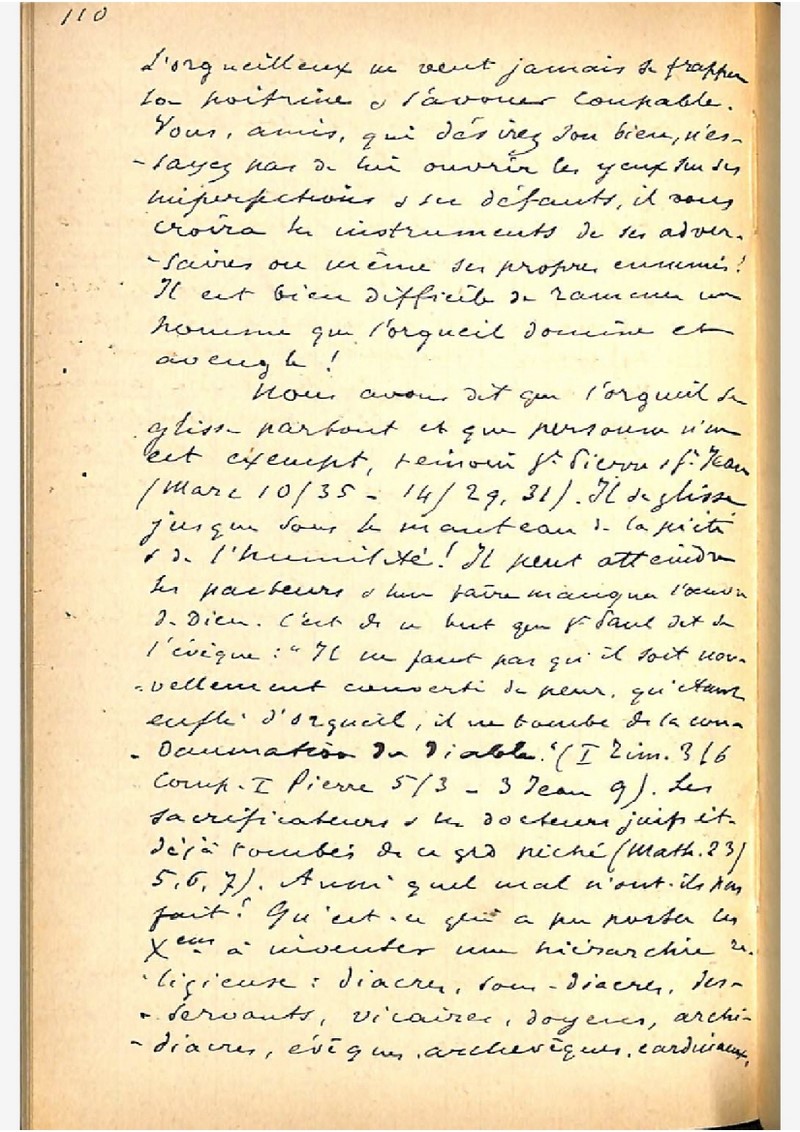 110
L'orgueilleux ne veut jamais se frapper
la poitrine & s'avouer coupable.
Vous, amis, qui désirez son bien, n'es-
-sayez pas de lui ouvrir les yeux sur ses
imperfections & ses défauts, il vous
croira les instruments de ses adver-
-saires ou même ses propres ennemis!
Il est bien difficile de ramener un
homme que l'orgueil domine et
aveugle!
Nous avons dit que l'orgueil se
glisse partout et que personne n'en
est exempt, témoin St Pierre & St Jean
(Marc 10/35 - 14/29, 31). Il se glisse
jusque sous le manteau de la piété
& de l'humilité! Il peut atteindre
les pasteurs & leur faire manquer l'œuvre
de Dieu. C'est de ce but que St Paul dit de
l'évêque: "Il ne faut pas qu'il soit nou-
-vellement converti de peur, qu'étant
enflé d'orgueil, il ne tombe de la con-
-damnation du Diable." (I Tim. 3/6
Comp. I Pierre 5/3 - 3 Jean 9). Les
sacrificateurs & les docteurs juifs ét.
déjà tombés de ce grd péché (Math. 23)
5, 6, 7). Aussi quel mal n'ont-ils pas
fait! Qu'est-ce qui a pu porter les
Xens à inventer une hiérarchie re-
-ligieuse: diacres, sous-diacres, des-
-servants, vicaires, doyens, archi-
-diacres, évêques, archevêques, cardinaux,